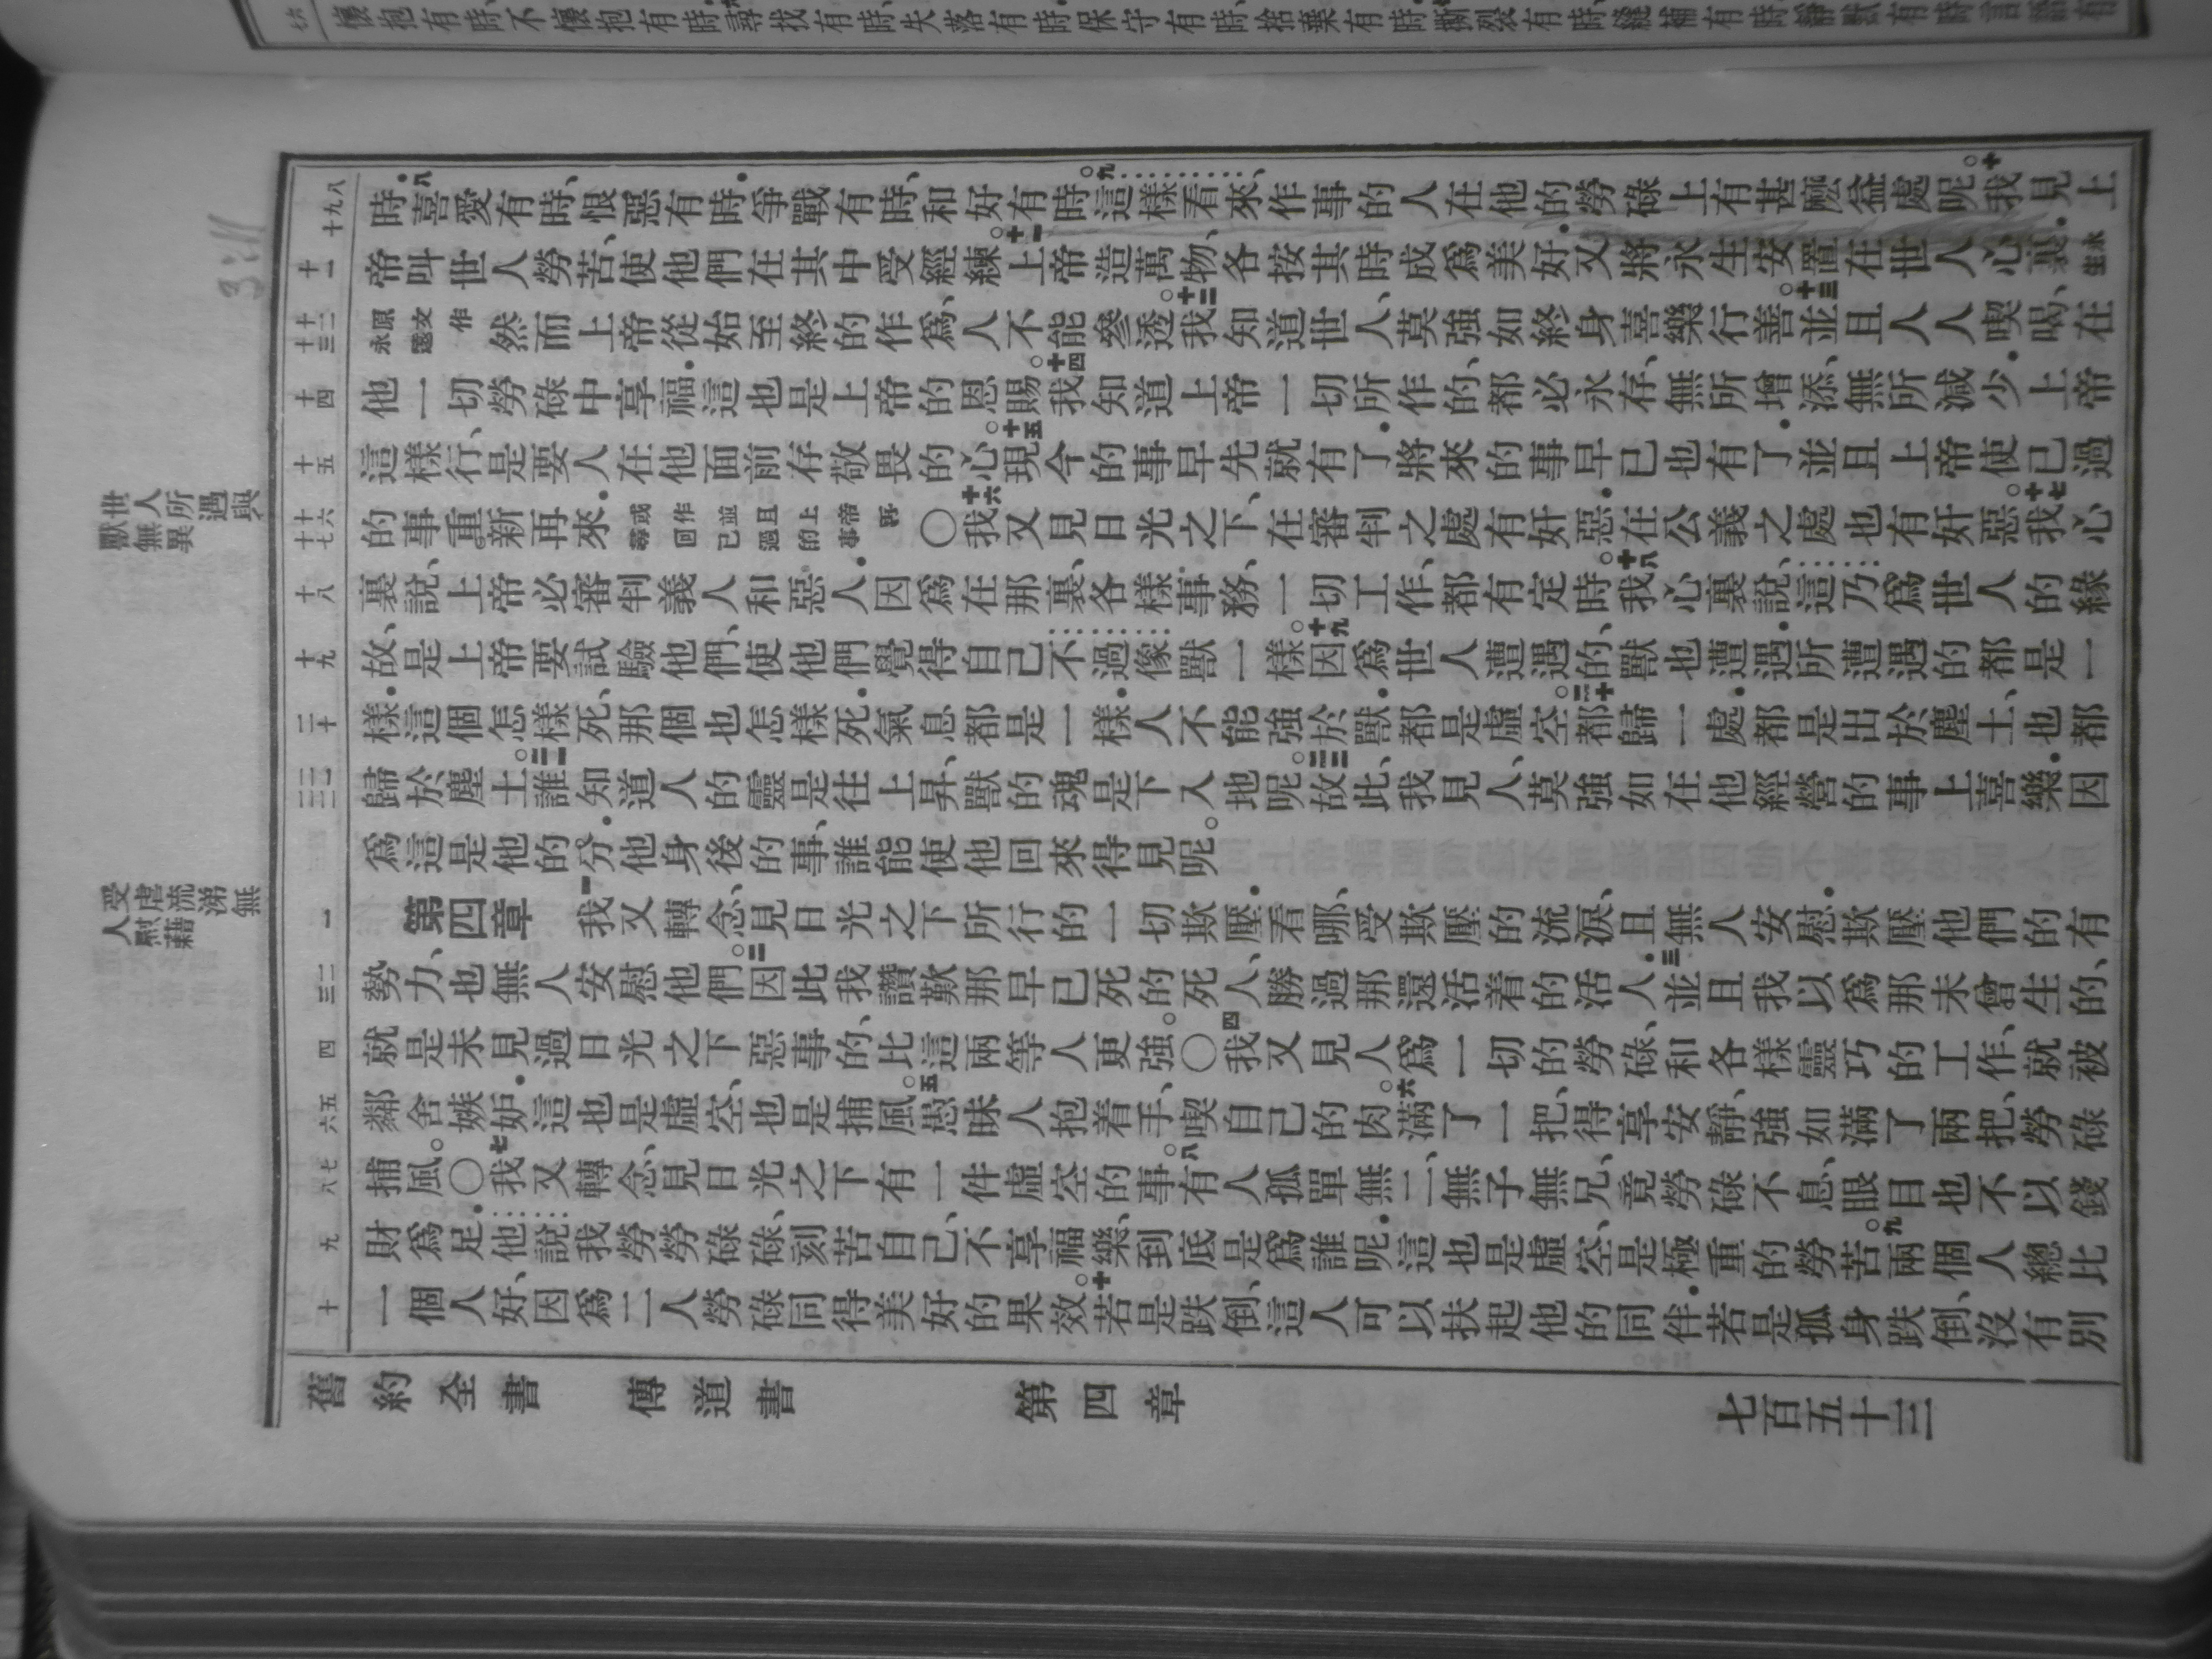 懷抱有時、不懷抱有時.尋找有時、失落有時.保守有時、捨棄有時.撕裂有時、縫補有時.靜默有時、言語有
時.八喜愛有時、恨惡有時.爭戰有時、和好有時。九這樣看來、作事的人在他的勞碌上有甚麼益處呢。十我見上
帝叫世人勞苦、使他們在其中受經練。十一上帝造萬物、各按其時成爲美好.又將永生安置在世人心裏.永生
原文作永遠 然而上帝從始至終的作爲、人不能參透。十二我知道世人、莫強如終身喜樂行善。十三並且人人喫喝、在
他一切勞碌中享福.這也是上帝的恩賜。十四我知道上帝一切所作的、都必永存、無所增添、無所減少.上帝
這樣行、是要人在他面前存敬畏的心。十五現今的事早先就有了.將來的事早已也有了.並且上帝使已過
的事重新再來.或作並且上帝再尋回已過的事 〇十六我又見日光之下、在審判之處有奸惡.在公義之處也有奸惡。十七我心
裏說、上帝必審判義人和惡人.因爲在那裏、各樣事務、一切工作、都有定時。十八我心裏說、這乃爲世人的緣
故、是上帝要試驗他們、使他們覺得自己不過像獸一樣。十九因爲世人遭遇的、獸也遭遇.所遭遇的都是一
樣.這個怎樣死、那個也怎樣死.氣息都是一樣.人不能強於獸.都是虛空。二十都歸一處.都是出於塵土、也都
歸於塵土。二一誰知道人的靈是往上昇、獸的魂是下入地呢。二二故此、我見人、莫強如在他經營的事上喜樂.因
爲這是他的分.他身後的事、誰能使他回來得見呢。
第四章 一我又轉念、見日光之下所行的一切欺壓.看哪、受欺壓的流淚、且無人安慰.欺壓他們的有
勢力、也無人安慰他們。二因此我讚歎那早已死的死人、勝過那還活着的活人.三並且我以爲那未曾生的、
就是未見過日光之下惡事的、比這兩等人更強。〇四我又見人爲一切的勞碌、和各樣靈巧的工作、就被
鄰舍嫉妒.這也是虛空、也是捕風。五愚昧人抱着手、喫自己的肉。六滿了一把、得享安靜、強如滿了兩把、勞碌
捕風。〇七我又轉念、見日光之下有一件虛空的事。八有人孤單無二、無子無兄、竟勞碌不息、眼目也不以錢
財爲足.他說、我勞勞碌碌、刻苦自己、不享福樂、到底是爲誰呢.這也是虛空、是極重的勞苦。九兩個人總比
一個人好、因爲二人勞碌同得美好的果效。十若是跌倒、這人可以扶起他的同伴.若是孤身跌倒、沒有別
八 九 十
十一
十二 十三
十四
十五
十六 十七
十八
十九
二十
二一 二二
一
二 三
四
五 六
七 八
九
十
3:11
世人所遇與
獸無異
受虐流涕無
人慰藉
舊約全書 傳道書 第四章 七百五十三